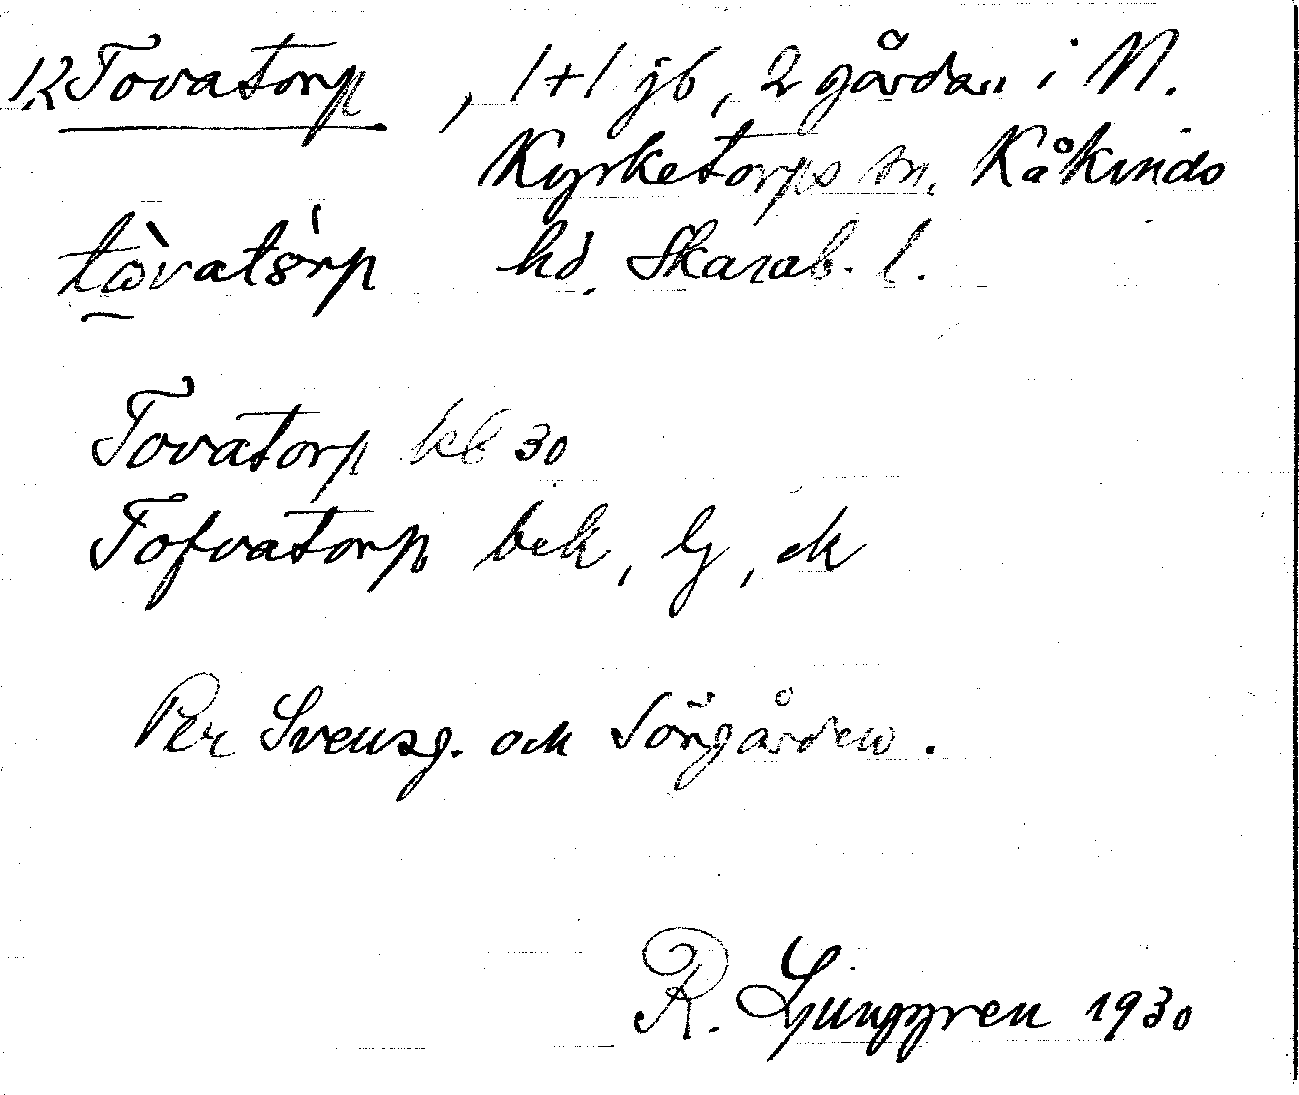 12 Tovatorp, 1+1 jb, 2 gårdar i N.
Kyrketorps sn. Kåkinds
tòvatórp hd. Skarab. l.
Tovatorp kb 30
Tofvatorp bek, lj, ek
Per Svensg. och Sörgården.
R. Ljunggren 1930